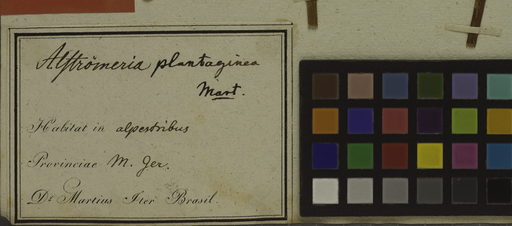 Alströmeria plantaginea
Mart.
Habitat in alpestribus
Provinciae M. Ger.
Dr. Martius Iter Brasil.